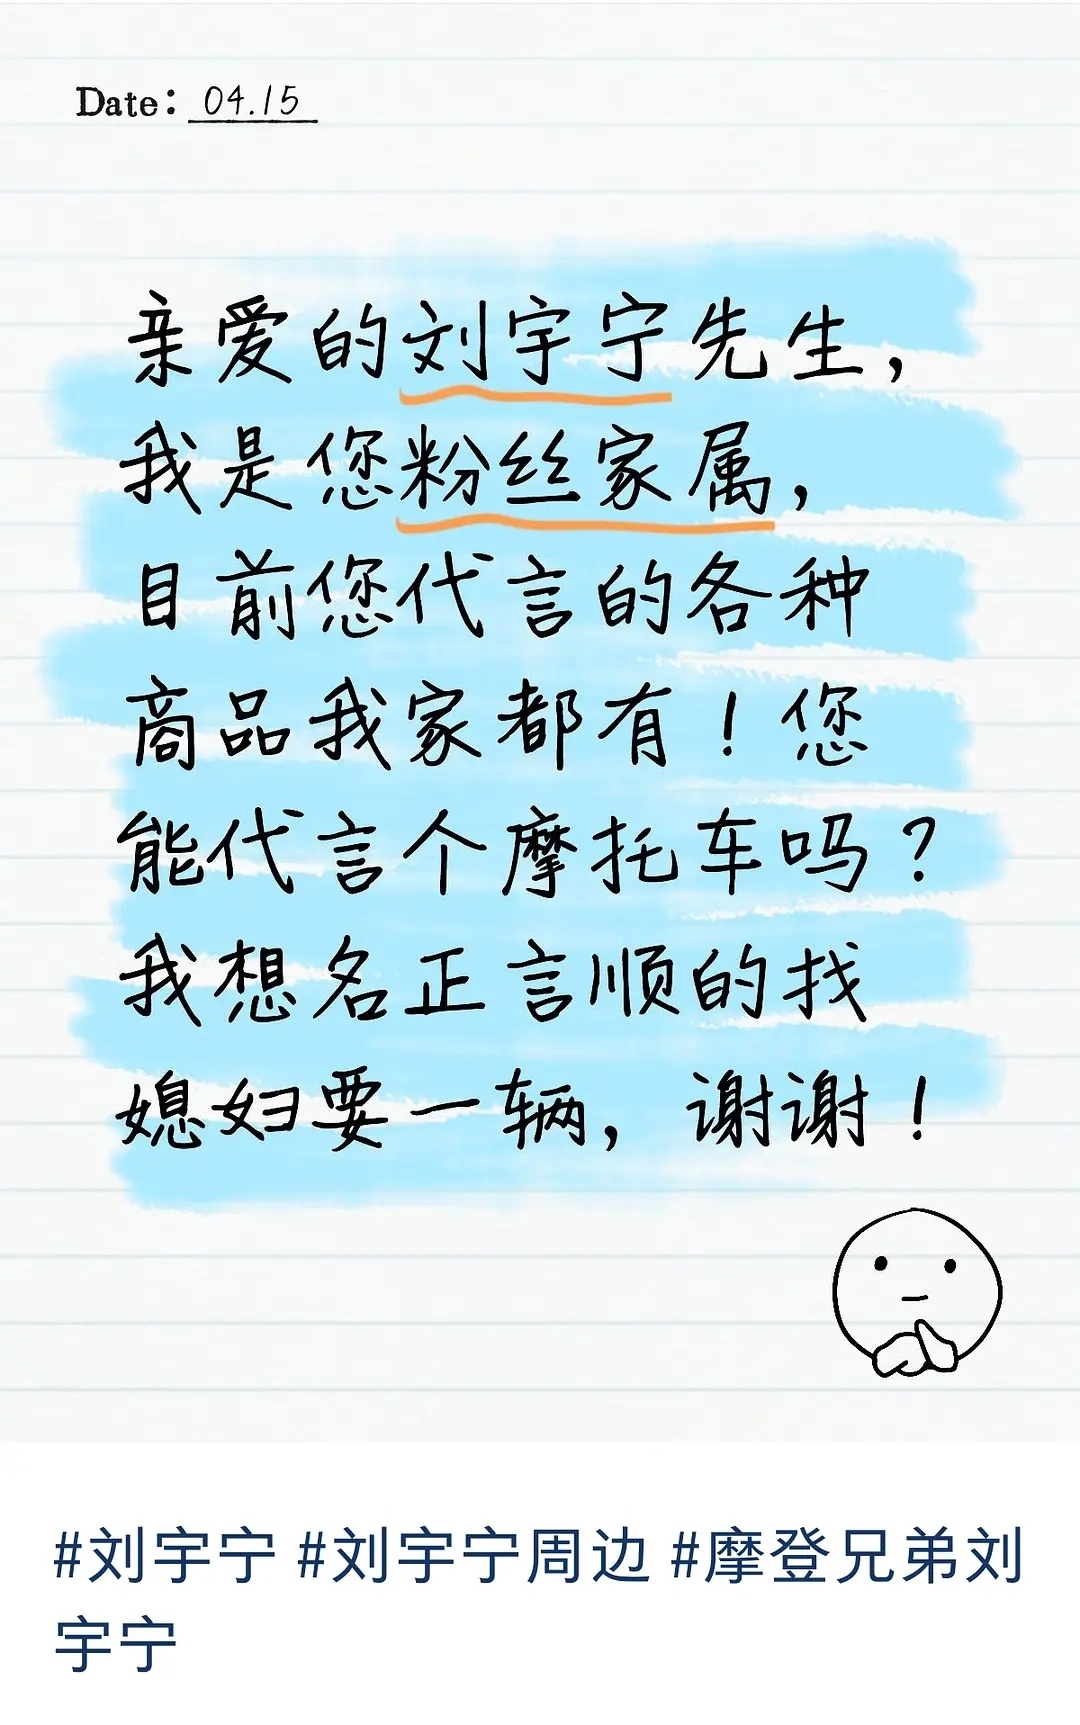 Date: 04.15
亲爱的刘宇宁先生,
我是您粉丝家属,
目前您代言的各种
商品我家都有!您
能代言个摩托车吗?
我想名正言顺的找
媳妇要一辆,谢谢!
#刘宇宁 #刘宇宁周边 #摩登兄弟刘
宇宁